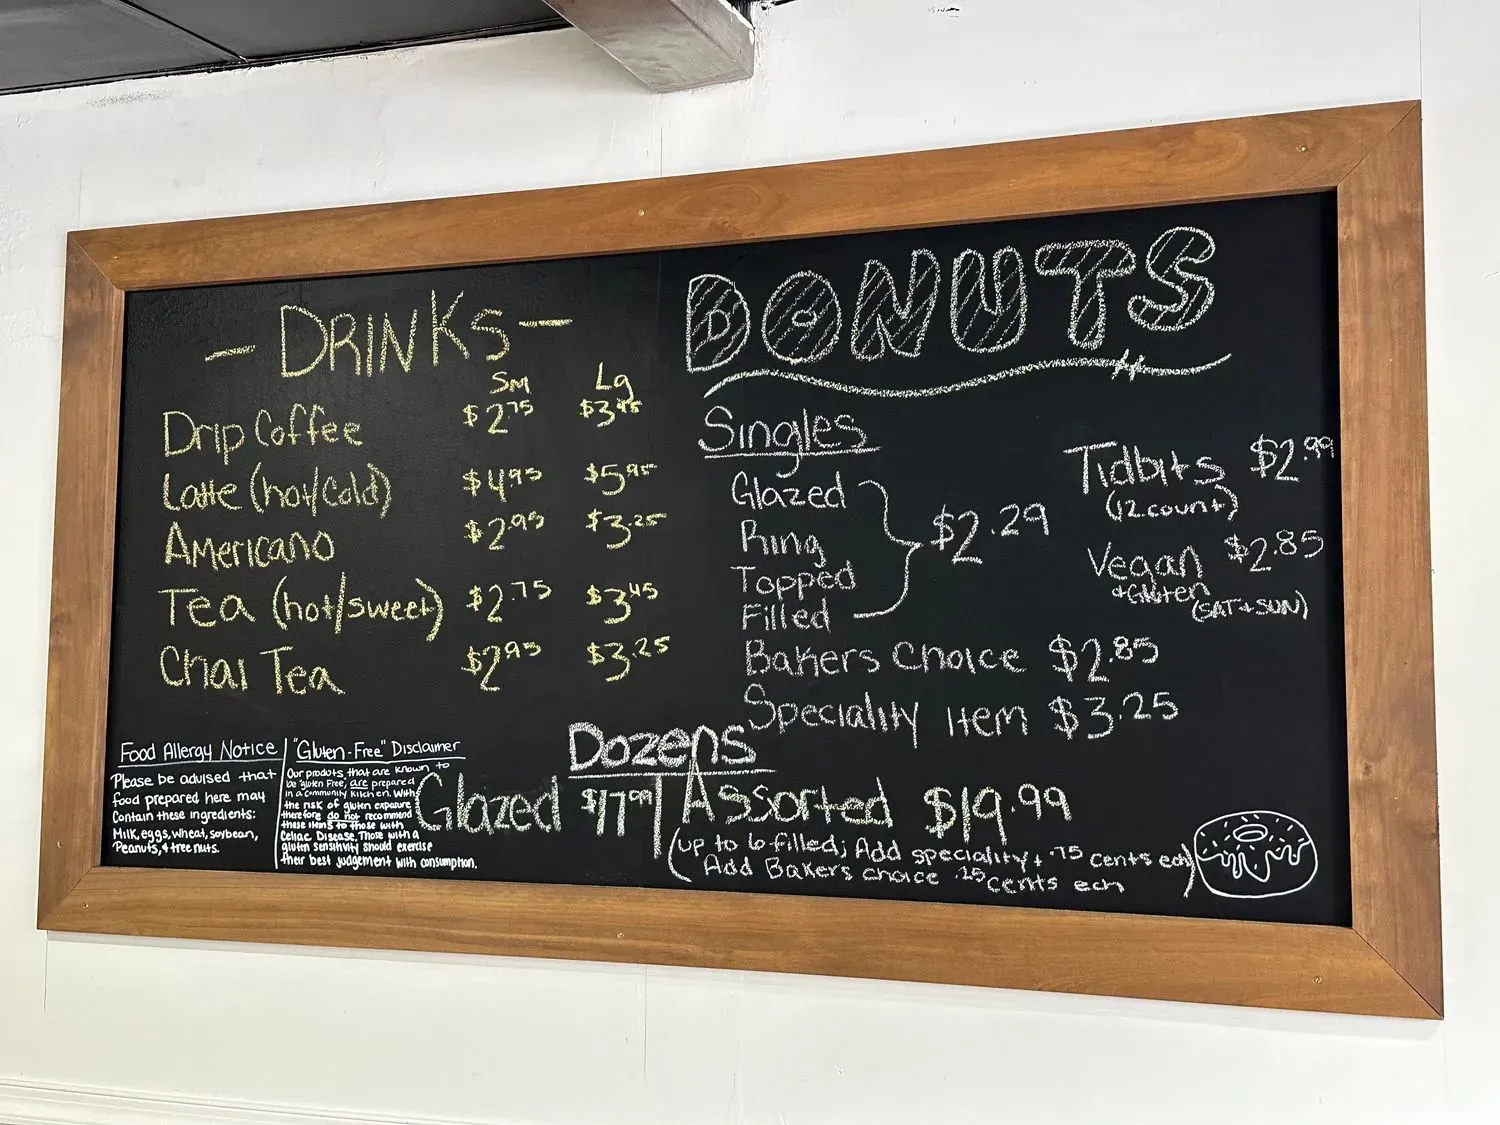 - DRINKS -
Sm Lg
Drip Coffee $2.75 $3.45
Latte (hot/cold) $4.95 $5.95
Americano $2.95 $3.25
Tea (hot/sweet) $2.75 $3.45
Chai Tea $2.95 $3.25
Food Allergy Notice
Please be advised that
food prepared here may
Contain these ingredients:
Milk, eggs, wheat, soybean,
Peanuts, + tree nuts.
"Gluten-Free" Disclaimer
Our produts, that are known to
be "gluten Free", are prepared
in a community kitchen. With
the risk of gluten exposure
therefore do not recommend
these items to those with
Celiac Disease. Those with a
gluten sensitivity should exercise
their best judgement with consumption.
DONUTS
Singles
Glazed
Ring
Topped
Filled
$2.29
Bakers Choice $2.85
Speciality Item $3.25
Tidbits $2.99
(12 count)
Vegan $2.85
+ Gluten
(SAT + SUN)
Dozens
Glazed $17.99
Assorted $19.99
(up to 6 filled; Add speciality + .75 cents ech
Add Bakers choice .25 cents ech)